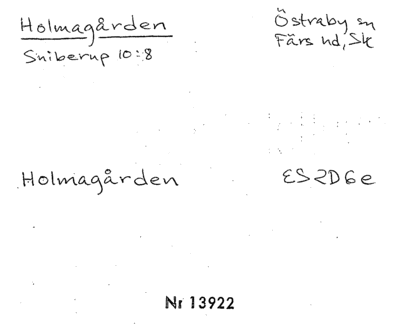 Holmagården
Östraby sn
Sniberup 10:8
Färs hd, Sk
Holmagården
ES 2D6e
Nr 13922